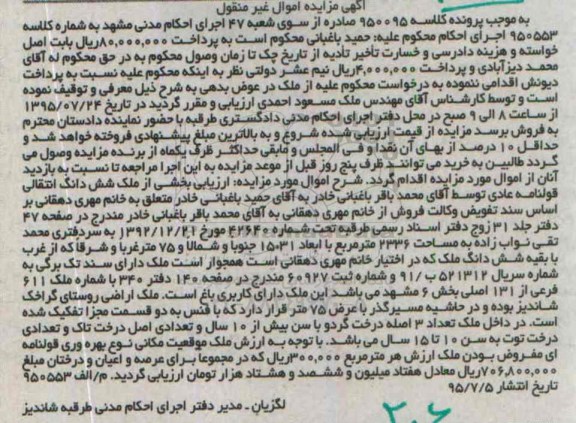 آگهی مزایده اموال غیر منقول
به موجب پرونده کلاسه ۹۵۰۰۹۵ صادره از سوی شعبه ۴۷ اجرای احکام مدنی مشهد به شماره کلاسه
۹۵۰۵۵۳ اجرای احکام محکوم علیه: حمید باغبانی محکوم است به پرداخت ۸۰,۰۰۰,۰۰۰ریال بابت اصل
خواسته و هزینه دادرسی و خسارت تأخیر تأدیه از تاریخ چک تا زمان وصول محکوم به در حق محکوم له آقای
محمد دیزآبادی و پرداخت ۴,۰۰۰,۰۰۰ریال نیم عشر دولتی نظر به اینکه محکوم علیه نسبت به پرداخت
دیونش اقدامی ننموده به درخواست محکوم علیه از ملک در عوض بدهی به شرح ذیل معرفی و توقیف نموده
است و توسط کارشناس آقای مهندس ملک مسعود احمدی ارزیابی و مقرر گردید در تاریخ ۱۳۹۵/۰۷/۲۴
از ساعت ۸ الی ۹ صبح در محل دفتر اجرای احکام مدنی دادگستری طرقبه با حضور نماینده دادستان محترم
به فروش برسد مزایده از قیمت ارزیابی شده شروع و به بالاترین مبلغ پیشنهادی فروخته خواهد شد و
حداقل ۱۰ درصد از بهای آن نقدا و فی المجلس و مابقی حداکثر ظرف یکماه از برنده مزایده وصول می
گردد طالبین به خرید می توانند ظرف پنج روز قبل از موعد مزایده به این اجرا مراجعه تا نسبت به بازدید
آنان از اموال مورد مزایده اقدام گردد. شرح اموال مورد مزایده: ارزیابی بخشی از ملک شش دانگ انتقالی
قولنامه عادی توسط آقای محمد باقر باغبانی خادر به آقای حمید باغبانی خادر متعلق به خانم مهری دهقانی بر
اساس سند تفویض وکالت فروش از خانم مهری دهقانی به آقای محمد باقر باغبانی خادر مندرج در صفحه ۴۷
دفتر جلد ۳۱ زوج دفتر اسناد رسمی طرقبه تحت شماره ۴۲۶۴۰ مورخ ۱۳۹۲/۱۲/۲۱ به سردفتری محمد
تقی نواب زاده به مساحت ۲۳۳۶ مترمربع با ابعاد ۱۵۰۳۱ جنوبا و شمالا و ۷۵ مترغربا و شرقا که از غرب
با بقیه شش دانگ ملک که در اختیار خانم مهری دهقانی است همجوار است ملک دارای سند تک برگی به
شماره سریال ۵۲۱۳۱۲ ب / ۹۱ و شماره ثبت ۶۰۹۲۷ مندرج در صفحه ۱۴۰ دفتر ۳۴۰ با شماره ملک ۶۱۱
فرعی از ۱۳۱ اصلی بخش ۶ مشهد می باشد این ملک دارای کاربری باغ است. ملک اراضی روستای گراخک
شاندیز بوده و در حاشیه مسیرگذر با عرض ۷۵ متر قرار دارد که با فنس به دو قسمت مجزا تفکیک شده
است. در داخل ملک تعداد ۳ اصله درخت گردو با سن بیش از ۱۰ سال و تعدادی اصل درخت تاک و تعدادی
درخت توت به سن ۱۰ تا ۱۵ سال می باشد. با توجه به ارزش ملک موقعیت مکانی نوع بهره وری قولنامه
ای مفروض بودن ملک ارزش هر مترمربع ۳۰۰,۰۰۰ریال که در مجموعا برای عرصه و اعیان و درختان مبلغ
۷۰۶,۸۰۰,۰۰۰ریال معادل هفتاد میلیون و ششصد و هشتاد هزار تومان ارزیابی گردید. م/الف ۹۵۰۵۵۳
تاریخ انتشار ۹۵/۷/۵
لگزیان - مدیر دفتر اجرای احکام مدنی طرقبه شاندیز
۲۰۶